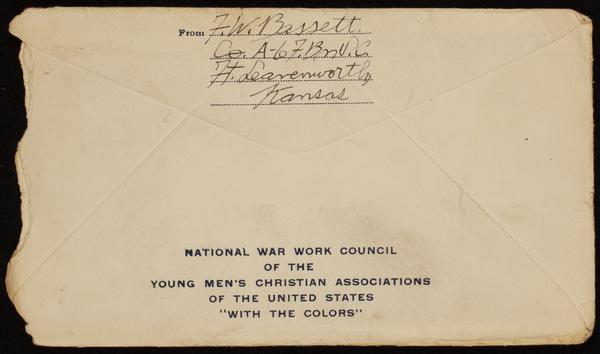 From F. W. Bissett.
Co. A-6 F. Bn. S. C.
Ft. Leavenworth,
Kansas
NATIONAL WAR WORK COUNCIL
OF THE
YOUNG MEN'S CHRISTIAN ASSOCIATIONS
OF THE UNITED STATES
"WITH THE COLORS"